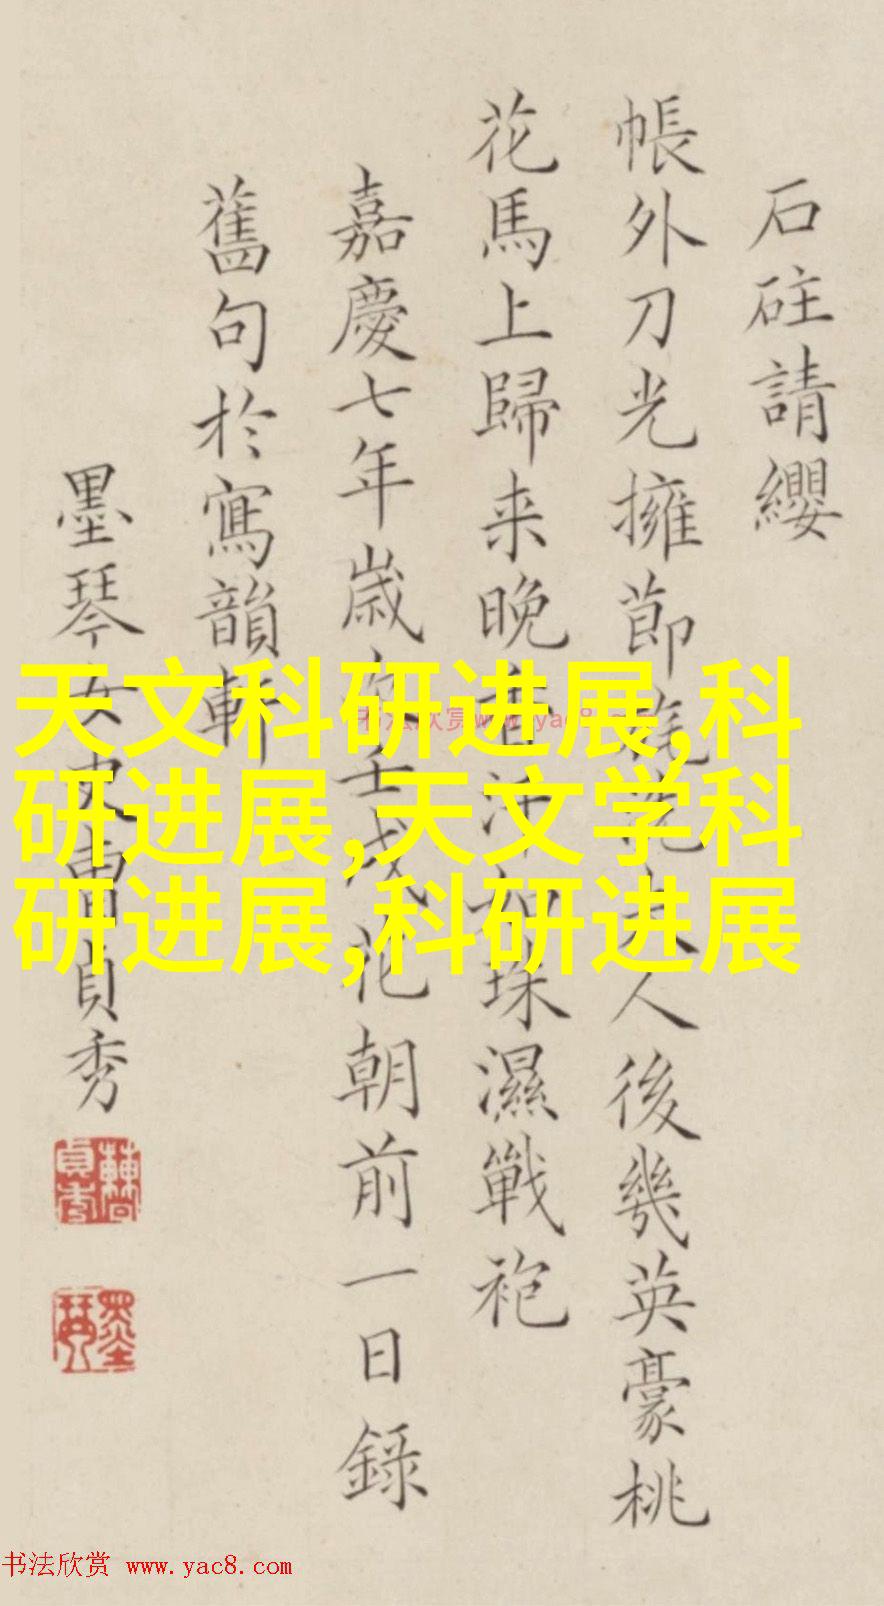 石砫請纓
帳外刀光擁節旄夫人後幾英豪桃
花馬上歸来晚香汗如珠濕戰袍
嘉慶七年歲次壬戌花朝前一日錄
舊句於寫韻軒
墨琴女史曹貞秀
天文科研进展,科
研进展,天文学科
研进展,科研进展
书法欣赏www.yac8
书法欣赏 www.yac8.com